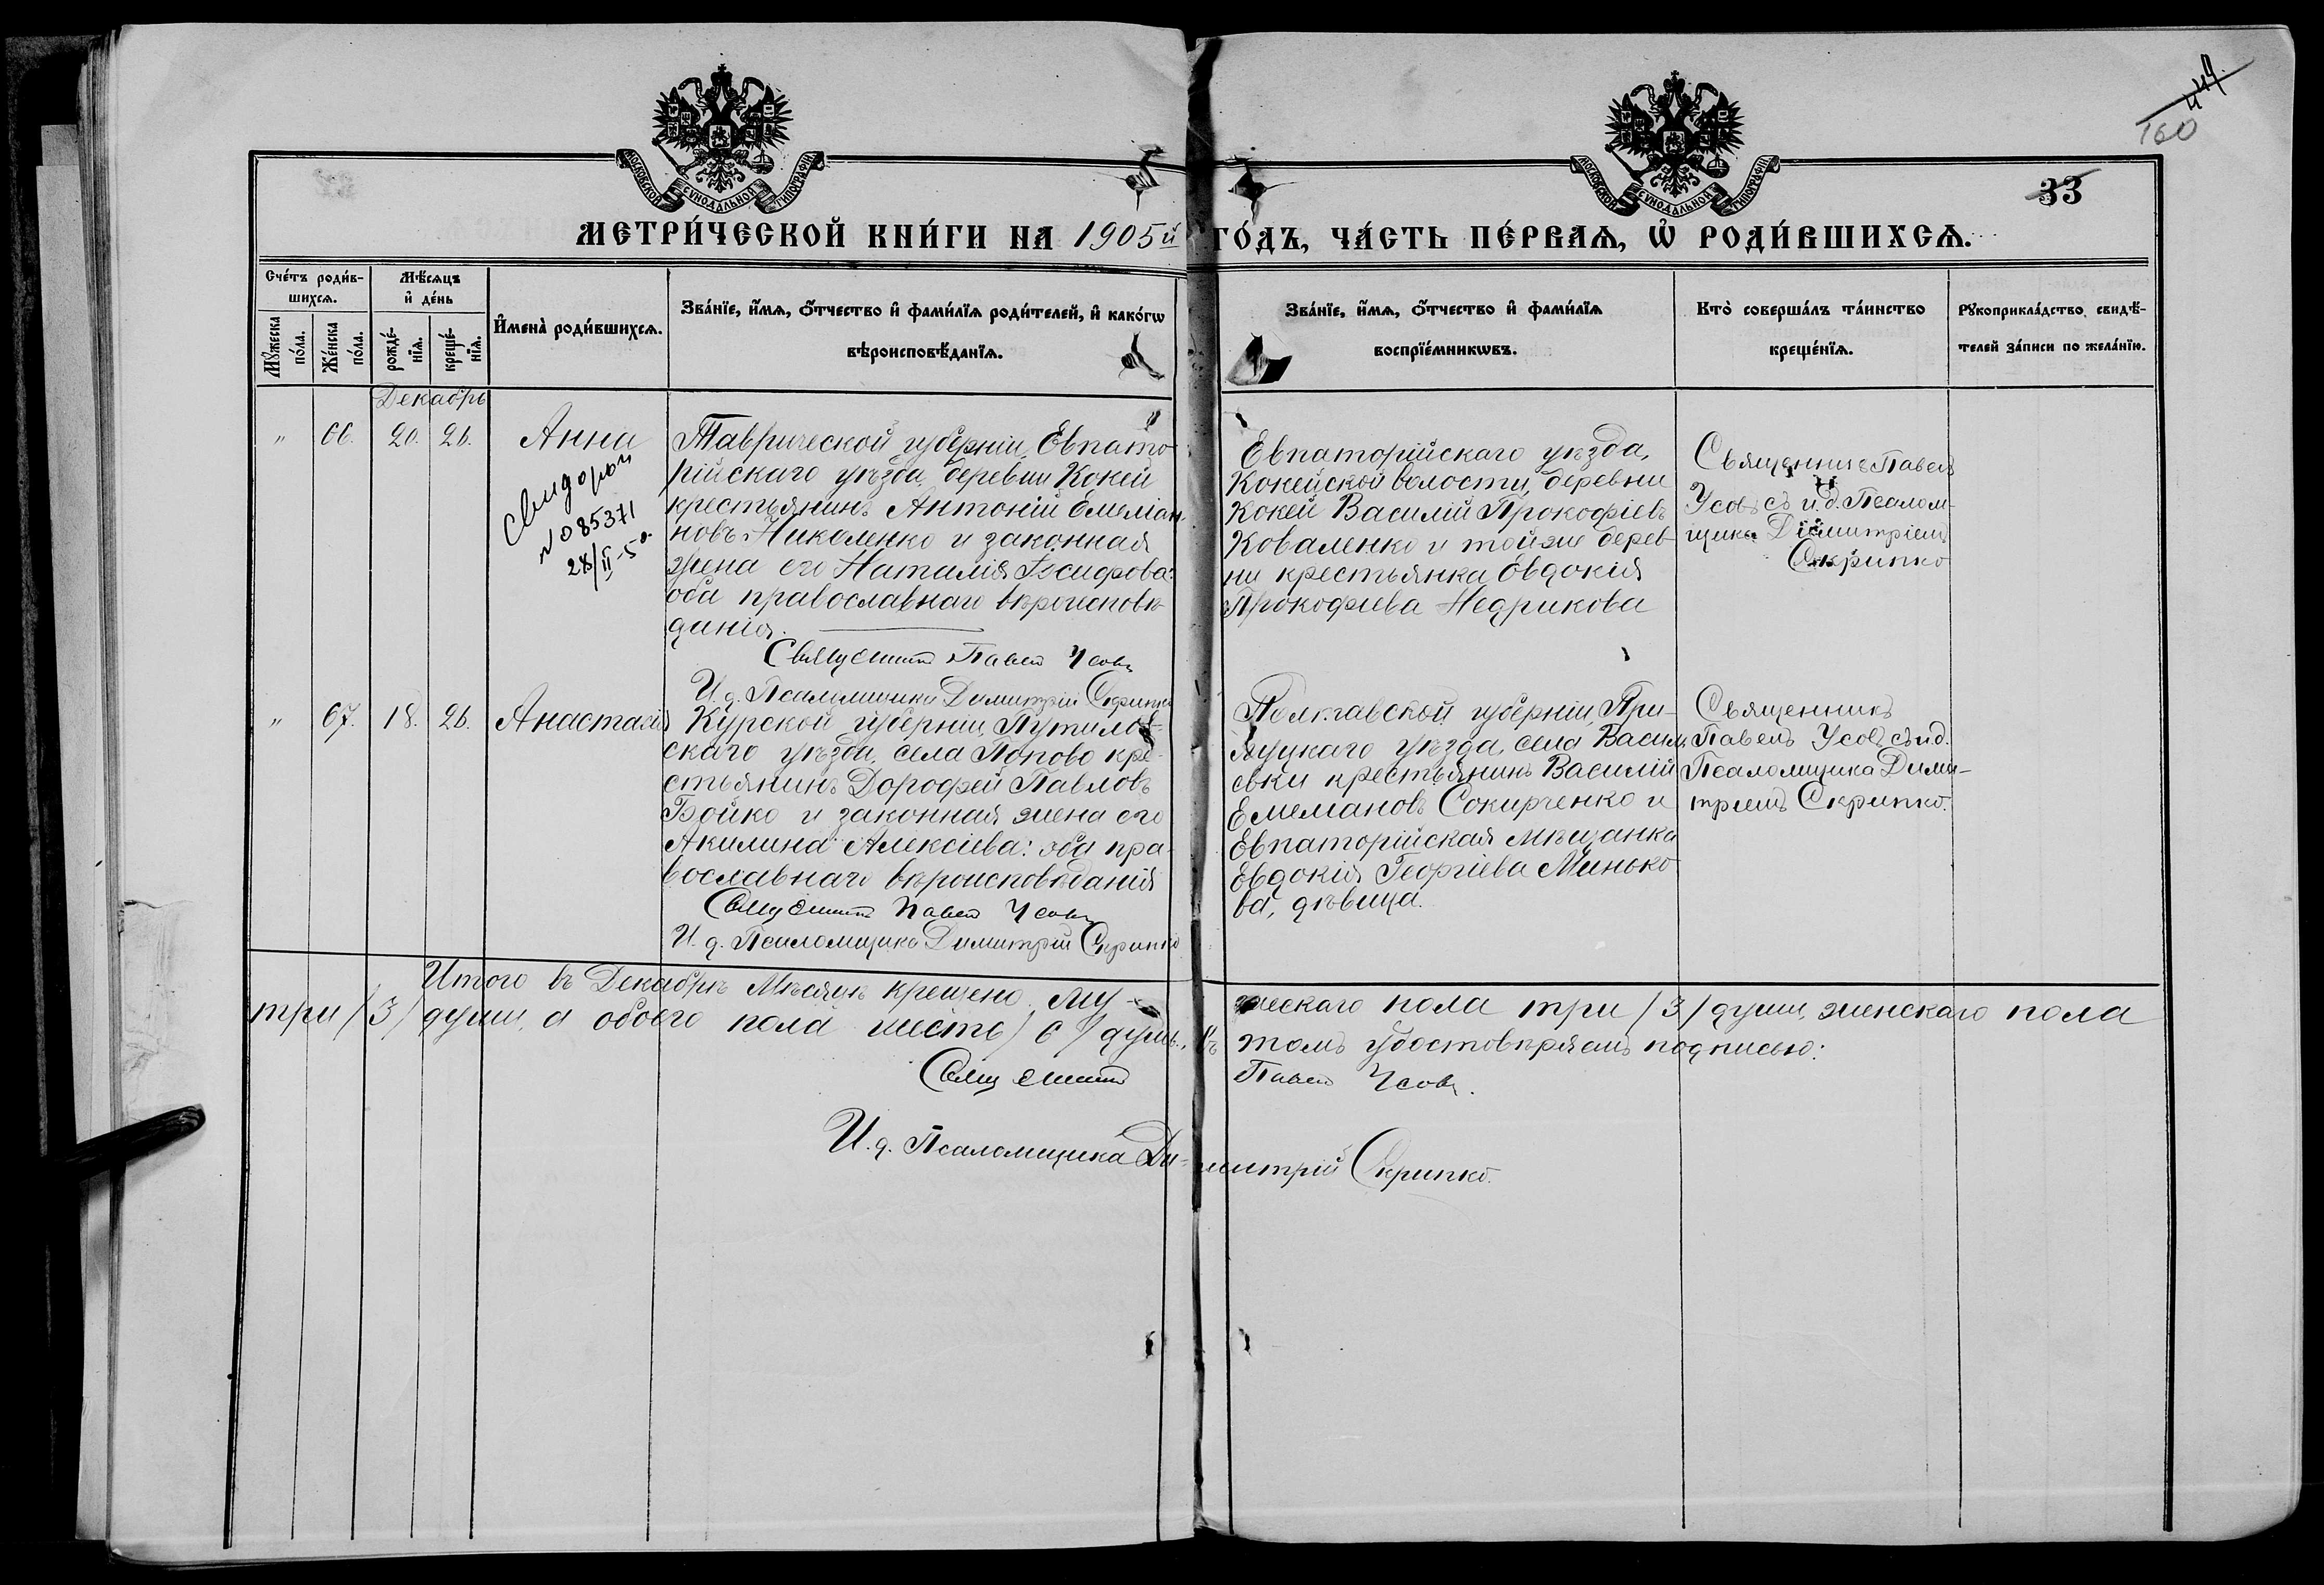 449
160
33
МОСКОВСКОЙ СУНОДАЛЬНОЙ ТИПОГРАФІИ
МОСКОВСКОЙ СУНОДАЛЬНОЙ ТИПОГРАФІИ
МЕТРИ́ЧЕСКОЙ КНИ́ГИ НА 1905й ГО́ДЪ, ЧА́СТЬ ПЕ́РВАѦ, Ѡ҆ РОДИ́ВШИХСѦ.
Сче́тъ роди́в-
шихсѧ.
Мꙋ́жеска
по́ла.
Же́нска
по́ла.
Мѣ́сѧцъ
и҆ де́нь
рожде́-
нїѧ.
креще́-
нїѧ.
И҆мена̀ роди́вшихсѧ.
Зва́нїе, и҆́мѧ, ѻ҆́тчество и҆ фами́лїѧ роди́телей, и҆ како́гѡ
вѣроисповѣ́данїѧ.
Зва́нїе, и҆́мѧ, ѻ҆́тчество и҆ фами́лїѧ
воспрїе́мникѡвъ.
Кто̀ соверша́лъ та́инство
креще́нїѧ.
Рꙋкоприкла́дство свидѣ́-
телей за́писи по жела́нїю.
Декабрь
" 66. 20. 26. Анна
№ 085371
28/II-50.
Таврической губерніи, Евпато-
рійскаго уѣзда, деревни Кокей
крестьянинъ Антоній Емеліан-
новъ Николенко и законная
жена его Наталія Іосифова:
оба православнаго вѣроисповѣ-
данія.
Священникъ Павелъ Усовъ
И. д. Псаломщика Димитрій Скрипко
Евпаторійскаго уѣзда,
Кокейской волости, деревни
Кокей Василій Прокофіевъ
Коваленко и той же дерев-
ни крестьянка Евдокія
Прокофиева Недрикова
Священникъ Павелъ
Усовъ съ и. д. Псалом-
щика Димитріемъ
Скрипко
" 67. 18. 26. Анастасія
Курской губерніи, Путилов-
скаго уѣзда, села Попово кре-
стьянинъ Дорофей Павловъ
Бойко и законная жена его
Акилина Алексіева: оба пра-
вославнаго вѣроисповѣданія
Священникъ Павелъ Усовъ
И. д. Псаломщика Димитрій Скрипко
Полтавской губерніи, При-
луцкаго уѣзда, села Василь-
евки крестьянинъ Василій
Емелиановъ Сокирченко и
Евпаторійская мѣщанка
Евдокія Георгіева Минько-
ва, дѣвица.
Священникъ
Павелъ Усовъ съ и. д.
Псаломщика Дими-
тріемъ Скрипко.
Итого въ Декабрѣ Мѣсяцѣ крещено: му- жескаго пола три /3/ души, женскаго пола
три /3/ души, а обоего пола шесть /6/ душъ. въ томъ удостовѣряемъ подписью:
Священникъ Павелъ Усовъ.
И. д. Псаломщика Ди- митрій Скрипко.